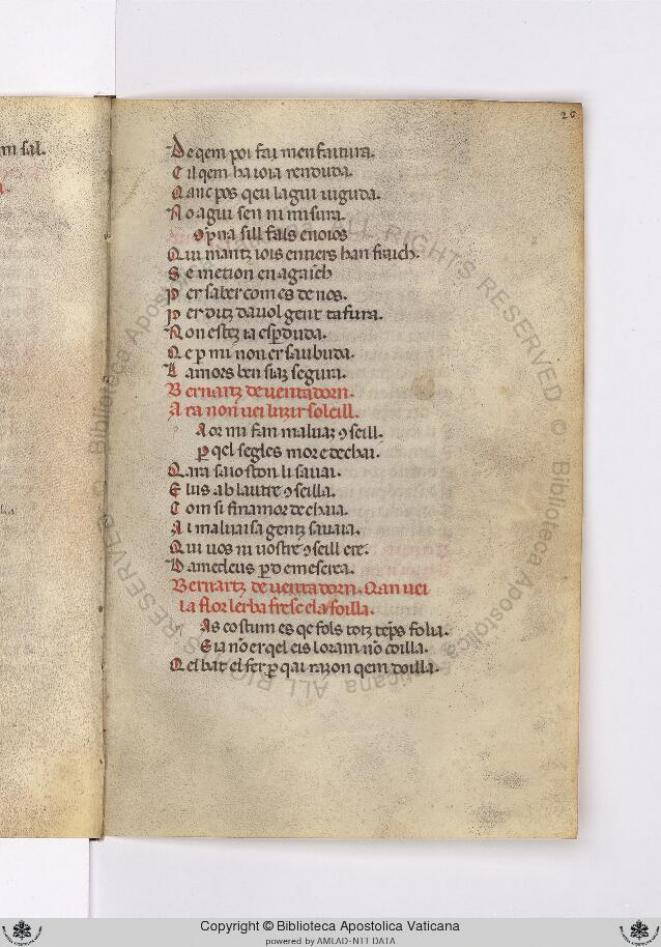 m sal.
26
De qem poi fai men faitura.
C il qem ha ioia renduda.
Q anc pos qeu lagui uiguda.
N o agui sen ni misura.
ꝯp na sill fals enoios
Q ui maintz iois entiers han fraich.
S e metion en agaich
P er saber com es de nos.
P er ditz dauol gent tafura.
N on estez ia espduda.
Q e p mi non er saubuda.
L amors ben siaz segura.
Bernartz de uentadorn.
A ra non uei luzir soleill.
A or mi fan maluaz ꝯseill.
ꝑ qel segles mor e dechai.
Q ara saioston li sauai.
E lus ab lautre ꝯseilla.
C om si finamor dechaia.
A i maluaisa gentz sauaia.
Q ui uos ni uostre ꝯseill cre.
D amedeus ꝑd e mescrea.
Bernartz de uentadorn. Qan uei
la flor lerba fresc ela foilla.
A s costum es qe fols totz tēps folia.
E ia nō er qel eis lo ram nō coilla.
Q el bat el fer ꝑ qai razon qem doilla.
Copyright © Biblioteca Apostolica Vaticana
powered by AMLAD-NTT DATA